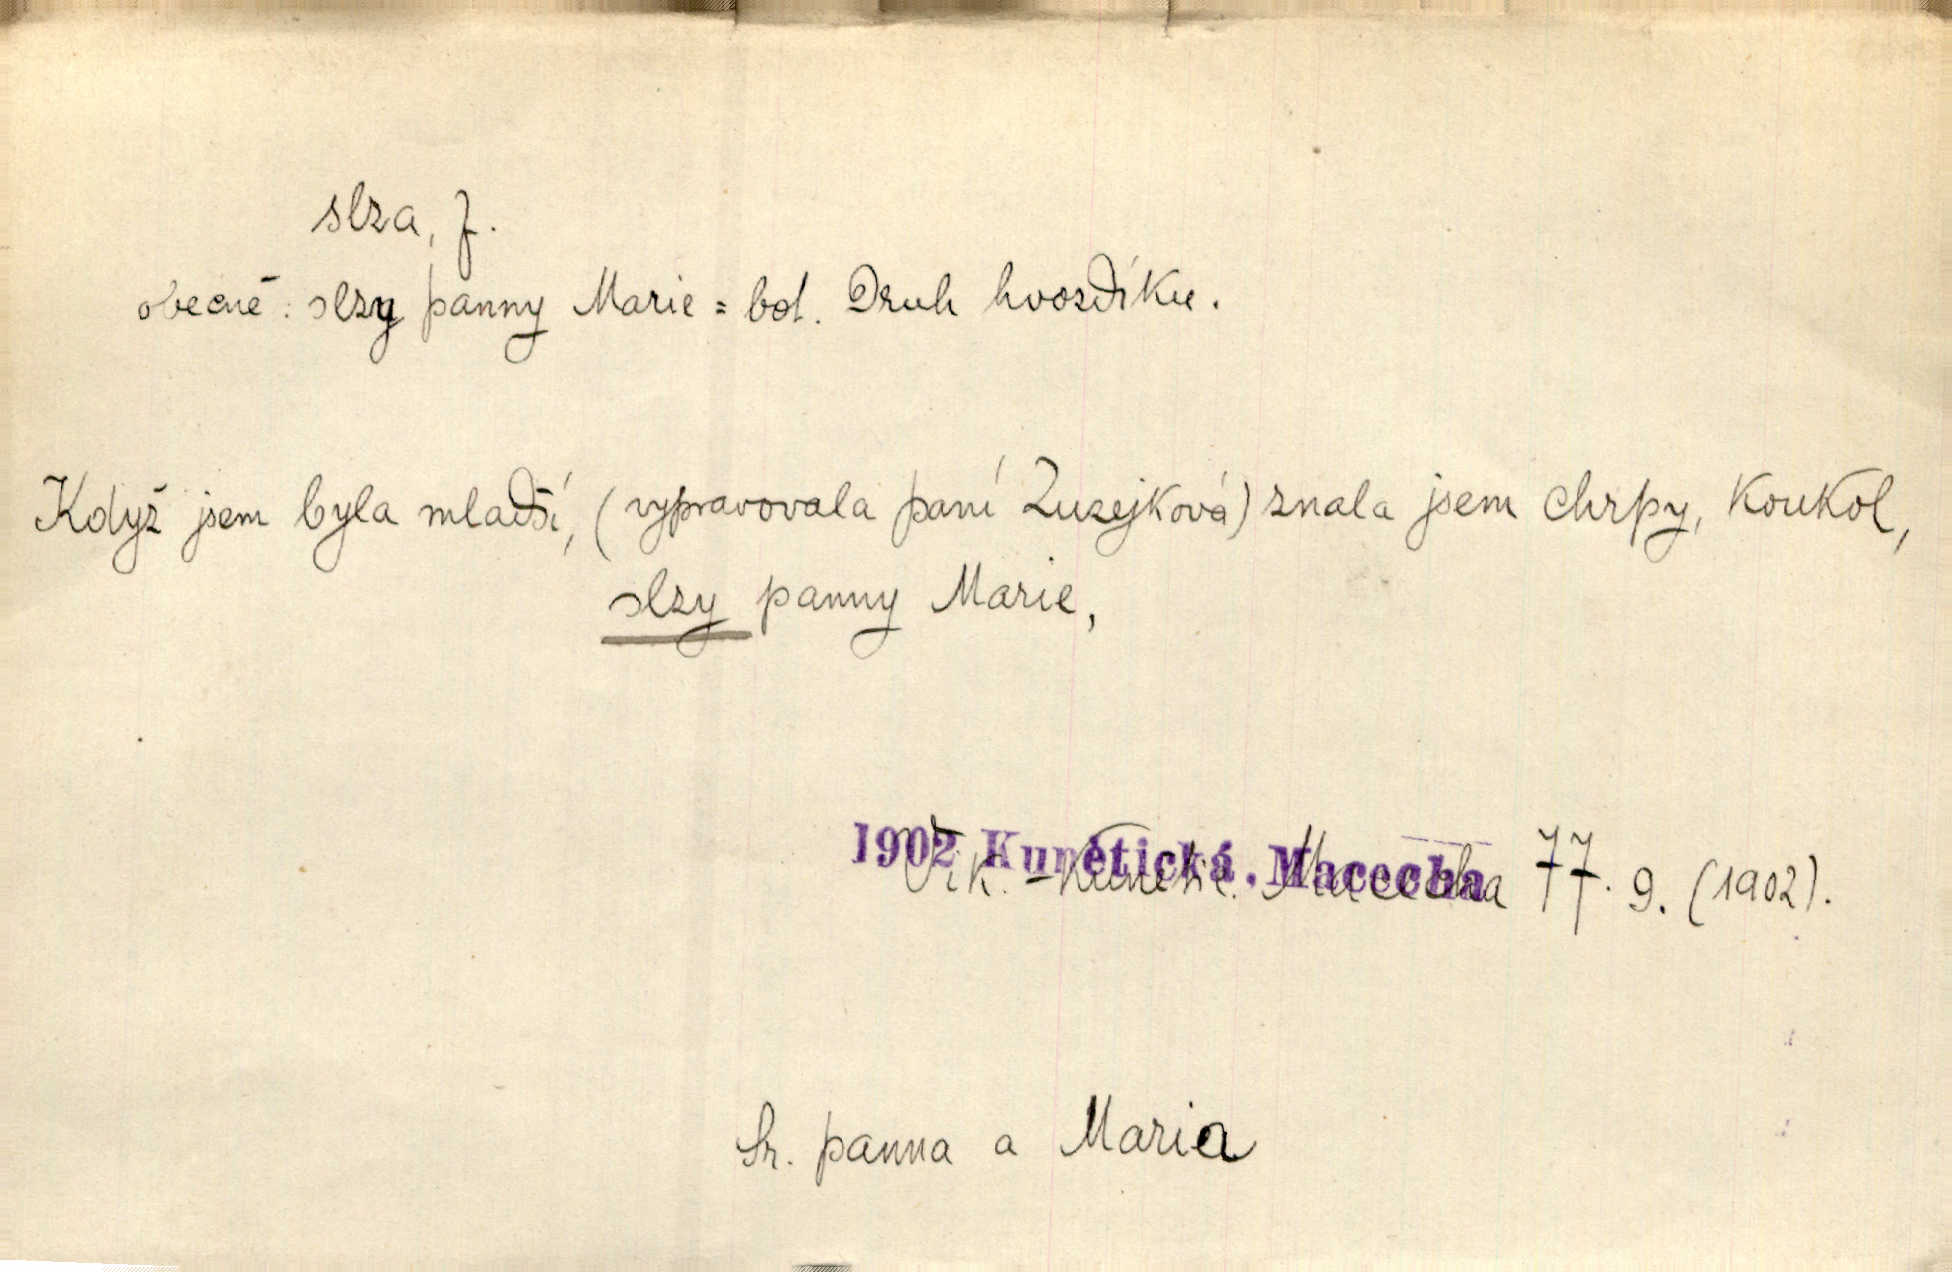 slza, f.
obecně: slzy panny Marie = bot. Druh hvozdíku.
Když jsem byla mladší, (vypravovala paní Zuzejková) znala jsem chrpy, koukol,
slzy panny Marie,
1902 Kunětická, Macecha
Vik. - Kunětic. Macecha 77. 9. (1902).
Sr. panna a Maria